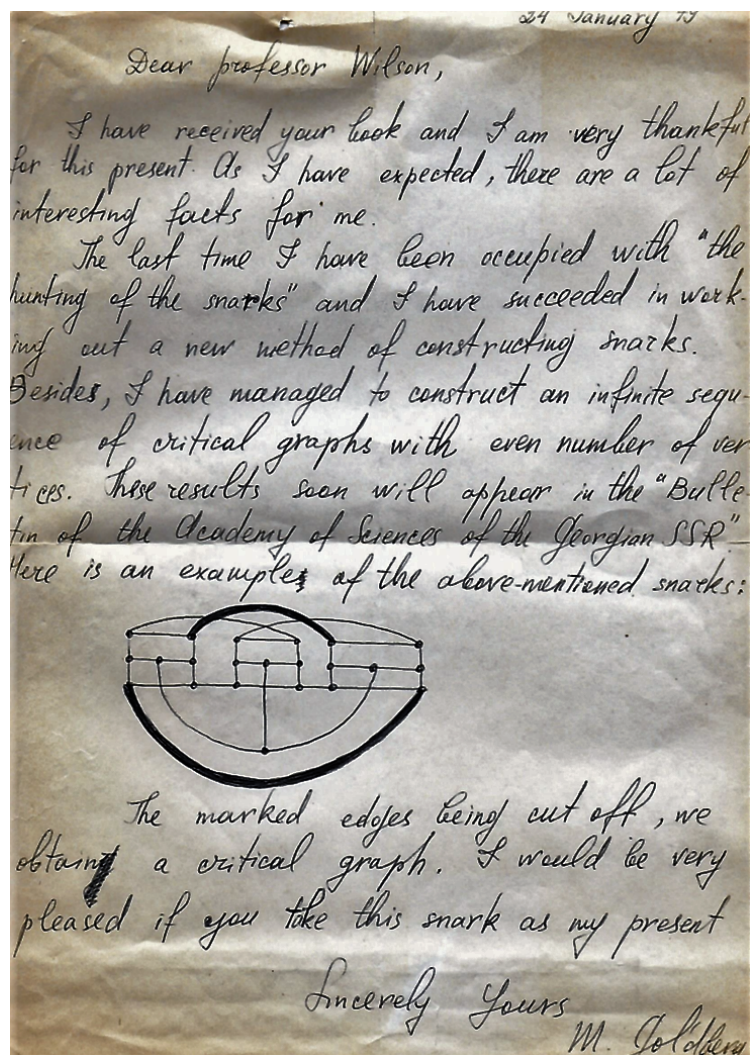 24 January 79
Dear professor Wilson,
I have received your book and I am very thankful
for this present. As I have expected, there are a lot of
interesting facts for me.
The last time I have been occupied with "the
hunting of the snarks" and I have succeeded in work-
ing out a new method of constructing snarks.
Besides, I have managed to construct an infinite sequ-
ence of critical graphs with even number of ver
tices. These results soon will appear in the "Bulle-
tin of the Academy of Sciences of the Georgian SSR."
Here is an example of the above-mentioned snarks:
The marked edges being cut off, we
obtain a critical graph. I would be very
pleased if you take this snark as my present
Sincerely Yours
M. Goldberg